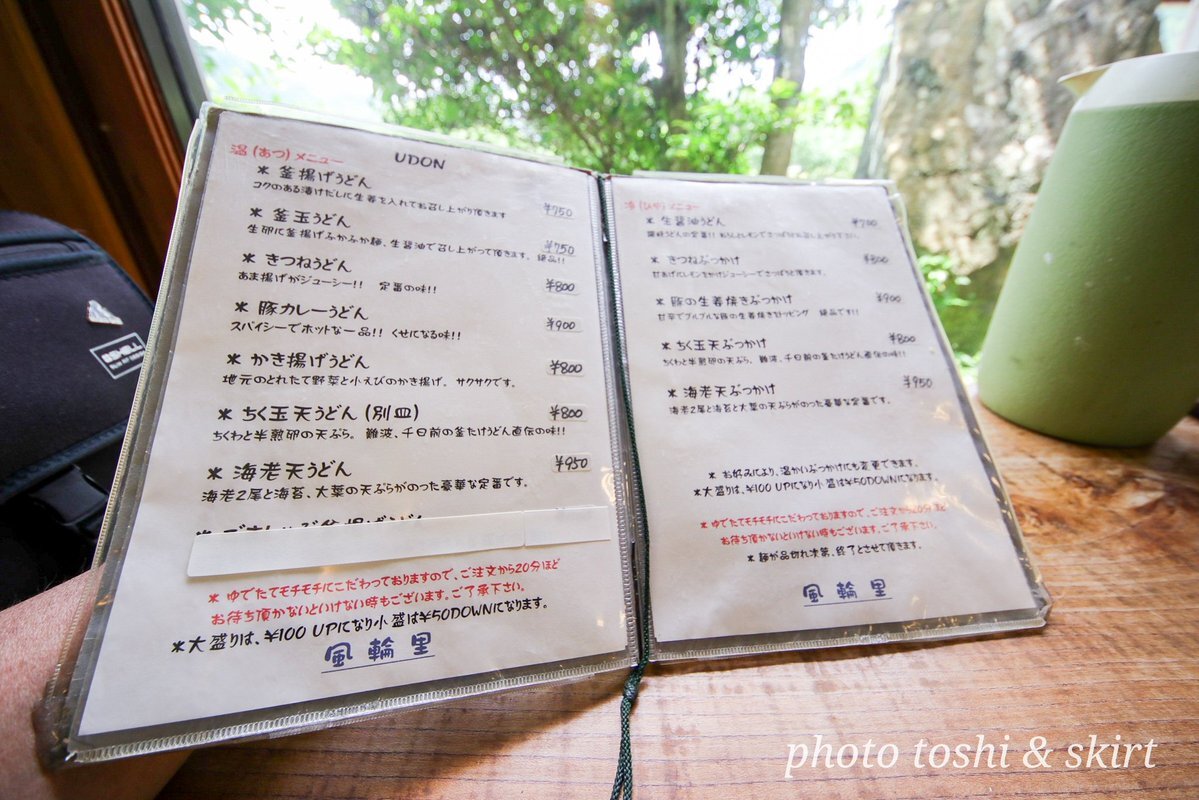 温(あつ)メニュー
UDON
* 釜揚げうどん
コクのある漬けだしに生姜を入れてお召し上がり頂きます
¥750
* 釜玉うどん
生卵に釜揚げふかふか麺、生醤油で召し上がって頂きます。 絶品!!
¥750
* きつねうどん
あま揚げがジューシー!! 定番の味!!
¥800
* 豚カレーうどん
スパイシーでホットな一品!! くせになる味!!
¥900
* かき揚げうどん
地元のとれたて野菜と小えびのかき揚げ。 サクサクです。
¥800
* ちく玉天うどん(別皿)
ちくわと半熟卵の天ぷら。 難波、千日前の釜たけうどん直伝の味!!
¥800
* 海老天うどん
海老2尾と海苔、大葉の天ぷらがのった豪華な定番です。
¥950
* ゆでたてモチモチにこだわっておりますので、ご注文から20分ほど
お待ち頂かないといけない時もございます。ご了承下さい。
*大盛りは、¥100 UPになり小盛は¥50DOWNになります。
風輪里
冷(ひや)メニュー
* 生醤油うどん
讃岐うどんの定番!!
¥700
* きつねぶつかけ
甘あげにレモンをかけジューシーでさっぱりと頂きます。
¥800
* 豚の生姜焼きぶつかけ
甘辛でプルプルな豚の生姜焼きをトッピング 絶品です!!
¥900
* ちく玉天ぶつかけ
ちくわと半熟卵の天ぷら。難波、千日前の釜たけうどん直伝の味!!
¥800
* 海老天ぶつかけ
海老2尾と海苔と大葉の天ぷらがのった豪華な定番です。
¥950
* お好みにより、温かいぶつかけにも変更できます。
*大盛りは、¥100 UPになり小盛は¥50DOWNになります。
* ゆでたてモチモチにこだわっておりますので、ご注文から20分ほど
お待ち頂かないといけない時もございます。ご了承下さい。
* 麺が品切れ次第、終了とさせて頂きます。
風輪里
photo toshi & skirt